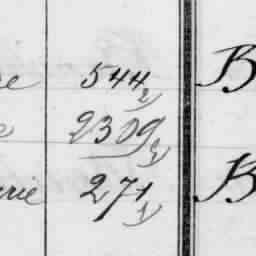 se 544 2 B
e 2309 2
urie 271 1 B